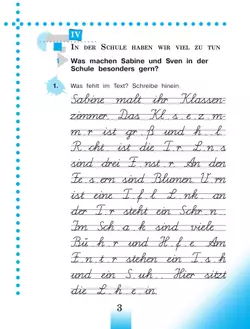 IV
IN DER SCHULE HABEN WIR VIEL ZU TUN
Was machen Sabine und Sven in der
Schule besonders gern?
1. Was fehlt im Text? Schreibe hinein.
Sabine malt ihr Klassen-
zimmer. Das Kl_s_e_z_m-
m_r ist gr_ß und h_l_.
R_cht ist die T_r. L_n_s
sind drei F_nst_r. An den
Fe_s_ern sind Blumen. V_rn
ist eine T_f_l. L_nk_ an
der T_r steht ein Schr_n_.
Im Sch_a_k sind viele
Bü_h_r und H_f_e. Am
F_n_t_r stehen ein T_s_h
und ein S_uh_. Hier sitzt
die L_h_e_in.
3